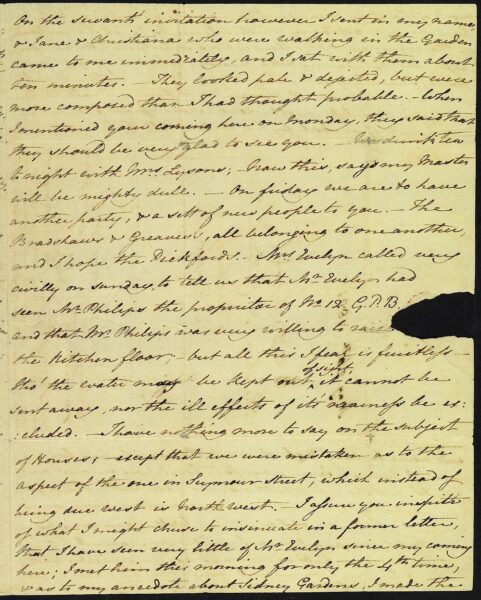 On the servants invitation however I sent in my name,
& Jane & Christiana who were walking in the Garden
came to me immediately, and I sat with them about
ten minutes. — They looked pale & dejected, but were
more composed than I had thought probable. — When
I mentioned your coming here on Monday, they said that
they should be very glad to see you. — We drink tea
to night with Mrs Lysons; — Now this, says my Master
will be mighty dull. — On friday we are to have
another party, & a sett of new people to you. — The
Bradshaws & Greaves's, all belonging to one another,
and I hope the Pickfords. — Mrs Evelyn called very
civilly on sunday, to tell us that Mr Evelyn had
seen Mr Philips the proprietor of No 12 G.P.B.
and that Mr Philips was very willing to raise
the kitchen floor; — but all this I fear is fruitless —
tho' the water may be kept out of sight, it cannot be
sent away, nor the ill effects of its nearness be ex:
:cluded. — I have nothing more to say on the subject
of Houses; — except that we were mistaken as to the
aspect of the one in Seymour Street, which instead of
being due west is North west. — I assure you inspite
of what I might chuse to insinuate in a former letter,
that I have seen very little of Mr Evelyn since my coming
here; I met him this morning for only the 4th time,
& as to my anecdote about Sidney Gardens, I made the